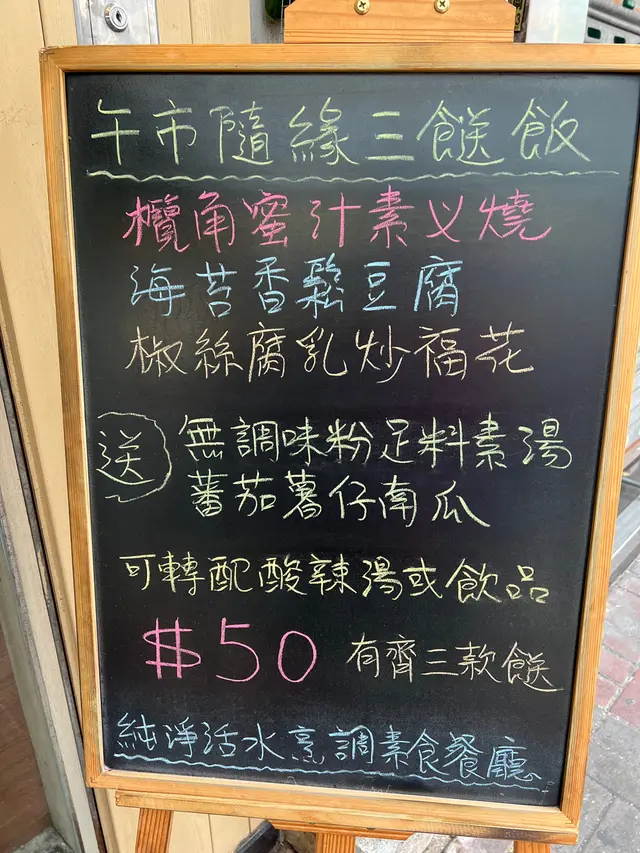 午市隨緣三餸飯
欖角蜜汁素叉燒
海苔香鬆豆腐
椒絲腐乳炒福花
送
無調味粉足料素湯
蕃茄薯仔南瓜
可轉配酸辣湯或飲品
$50 有齊三款餸
純淨活水烹調素食餐廳